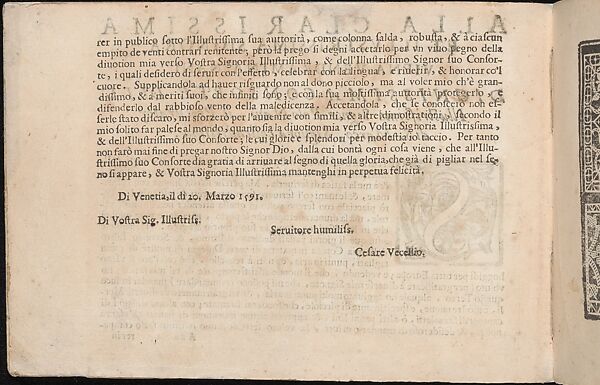 rer in publico sotto l'Illustrissima sua auttorità, come colonna salda, robusta, & à ciascun
empito de venti contrari renitente; però la prego si degni accetarlo per un viuo pegno della
diuotion mia verso Vostra Signoria Illustrissima, & dell'Illustrissimo Signor suo Consor-
te, i quali desidero di seruir con l'effetto, celebrar con la lingua, e riuerir, & honorar co'l
cuore. Supplicandola ad hauer risguardo non al dono picciolo, ma al voler mio ch'è gran-
dissimo, & à meriti suoi, che infiniti sono; e con la sua molissima auttorità proteggerlo, e
difenderlo dal rabbioso vento della maledicenza. Accetandola, che se conoscerò non es-
serle stato discaro, mi sforzerò per l'auuenire con simili, & altre dimostrationi, secondo il
mio solito far palese al mondo, quanto sia la diuotion mia verso Vostra Signoria Illustrissima,
& dell'Illustrissimo suo Consorte; le cui glorie e splendori per modestia io taccio. Per tanto
non farò mai fine di pregar nostro Signor Dio, dalla cui bontà ogni cosa viene, che all'Illu-
strissimo suo Consorte dia gratia di arriuare al segno di quella gloria, che già di pigliar nel se-
no si appare, & Vostra Signoria Illustrissima mantenghi in perpetua felicità.
Di Venetia, il dì 20. Marzo 1591.
Di Vostra Sig. Illustriss.
Seruitore humiliss.
Cesare Vecellio.